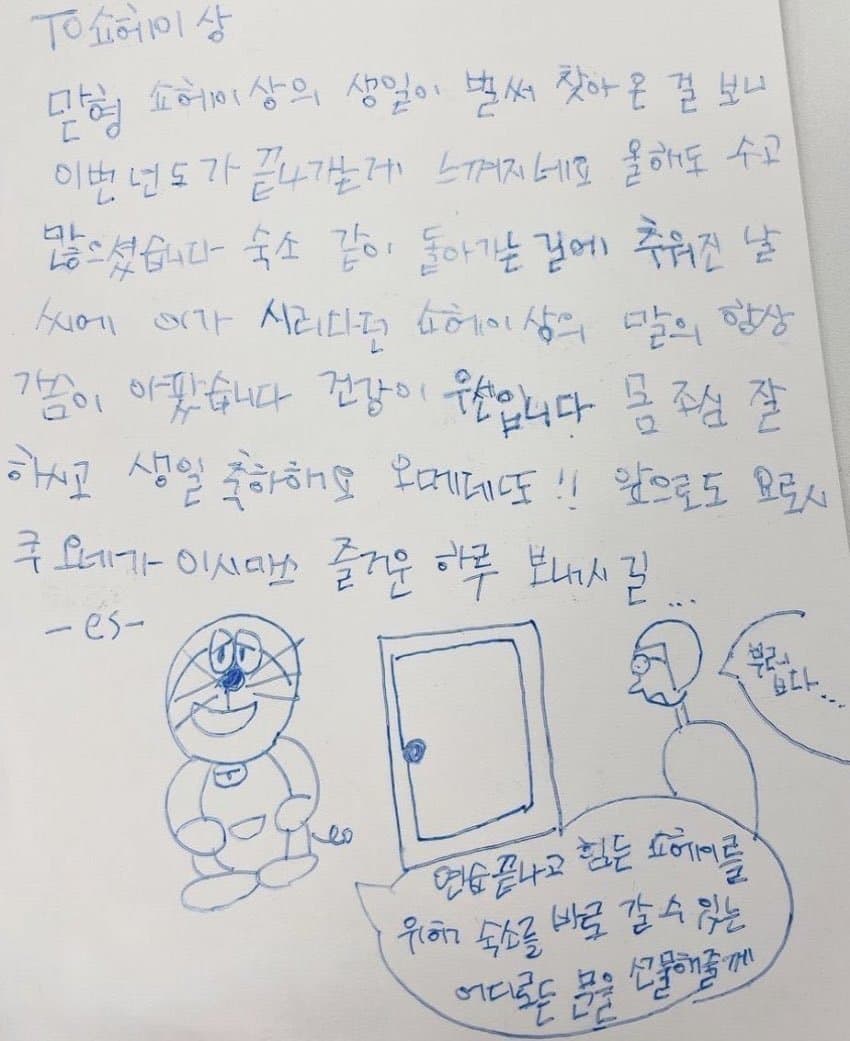 TO쇼헤이상
맏형 쇼헤이상의 생일이 벌써 찾아온 걸 보니
이번년도가 끝나가는게 느껴지네요 올해도 수고
많으셨습니다 숙소 같이 돌아가는길에 추워진 날
씨에 이가 시리다던 쇼헤이상의 말의 항상
가슴이 아팠습니다 건강이 우선입니다 몸 조심 잘
하시고 생일 축하해요 오메데또!! 앞으로도 요로시
쿠 오네가이시마스 즐거운 하루 보내시길...
-es-
부러
보다...
연습끝나고 힘든 쇼헤이를
위해 숙소를 바로 갈 수 있는
어디로든 문을 선물해줄게